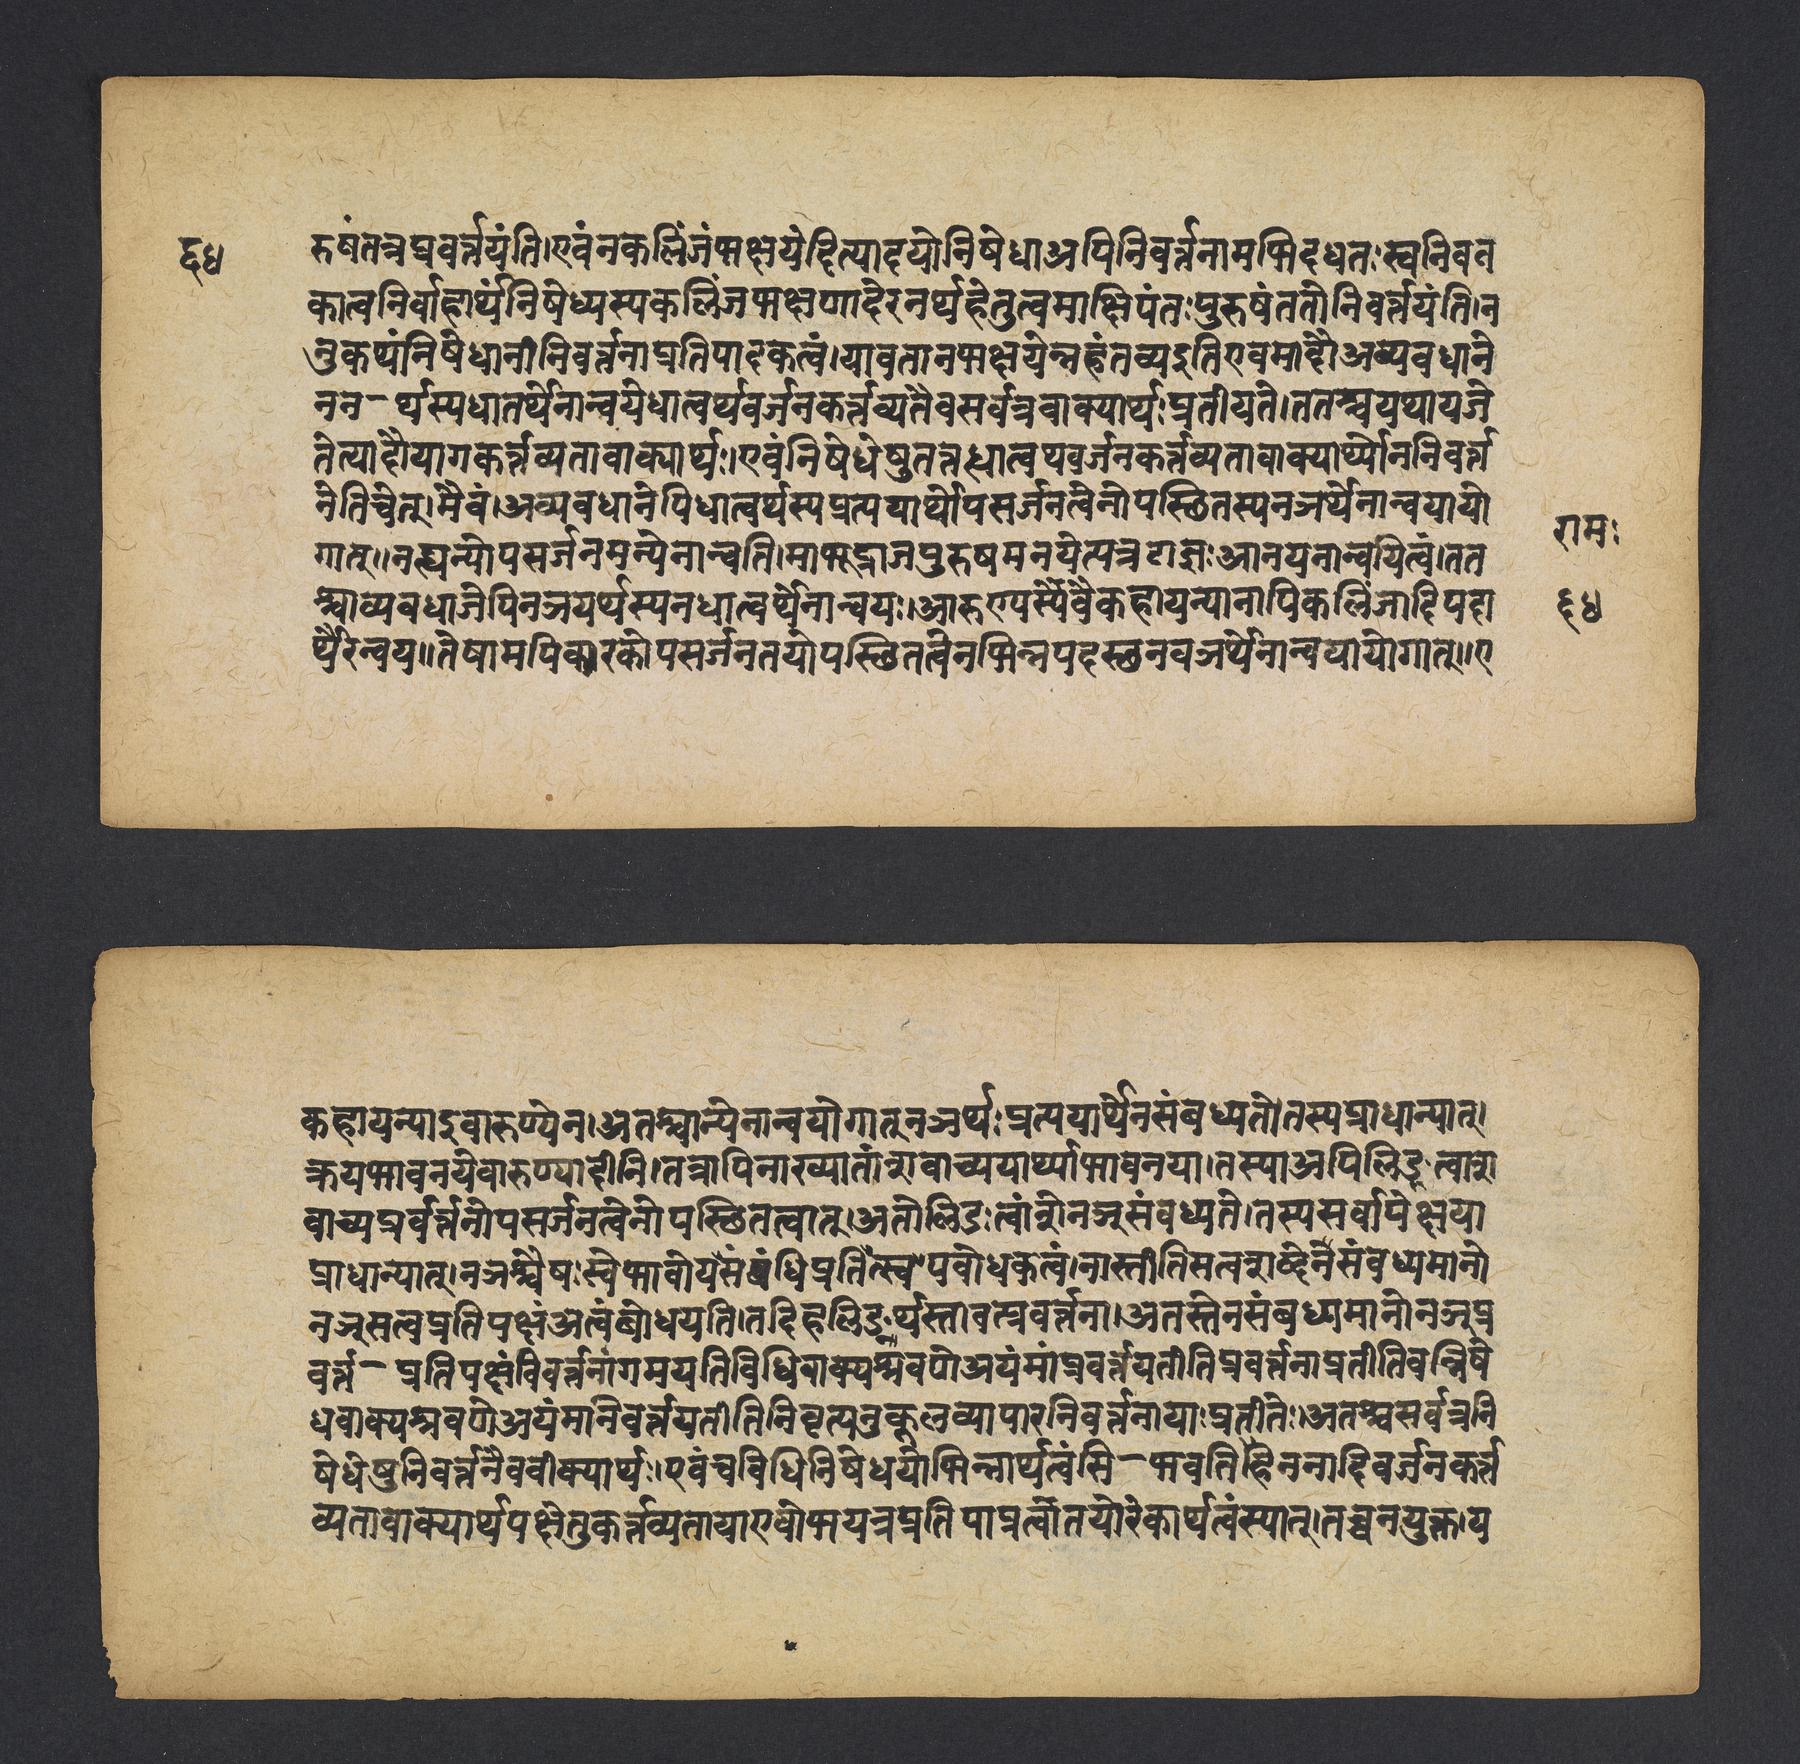 ६४
रुषंतत्रप्रवर्त्तयंति।एवंनकलिंजंभक्षयेदित्यादयोनिषेधाअपिनिवर्त्तनामभिदधतःस्वनिवन
कात्वनिर्वाहार्थंनिषेध्यस्यकलिंजभक्षणादेरनर्थहेतुत्वमाक्षिपंतःपुरुषंततोनिवर्त्तयंति।न
नुकथंनिषेधानांनिवर्त्तनाप्रतिपादकत्वं।यावतानभक्षयेन्नहंतव्यइतिएवमादौअव्यवधाने
नन-र्थस्यधातर्थेनान्वयेधात्वर्थवर्जनकर्त्तव्यतैवसर्वत्रवाक्यार्थःप्रतीयते।ततश्चयथायजे
तेत्यादौयागकर्त्तव्यतावाक्यार्थः।एवंनिषेधेषुतत्तद्धात्वथवर्जनकर्त्तव्यतावाक्यार्थोननिवर्त्त
नेतिचेत्।मैवं।अव्यवधानेपिधात्वर्थस्यप्रत्ययार्थोपसर्जनत्वेनोपस्थितस्यनञर्थेनान्वयायो
गात्॥नह्यन्योपसर्जनमन्येनान्वेति।माभूद्राजपुरुषमनयेत्यत्रराज्ञःआनयनान्वयित्वं।तत
श्चाव्यवधाजेपिनञयर्थस्यनधात्वर्थेनान्वयः।आरुएयस्यैवैकहायन्यानापिकलिंजादिपदा
र्थैरन्वय॥तेषामपिकारकोपसर्जनतयोपस्थितत्वेनभिन्नपदस्छनवञर्थेनान्वयायोगात्॥ए
रामः
६४
कहायन्याइवारुण्येन।अतश्चान्येनान्वयोगात्नञर्थःप्रत्ययार्थेनसंबध्यतो।तस्यप्राधान्यात्।
क्रयभावनयेवारुण्यादीनि।तत्रापिनाख्यातांशवाच्ययार्थ्याभावनया।तस्याअपिलिङ्त्वांश
वाच्यप्रर्वर्त्तनोपसर्जनत्वेनोपस्थितत्वात्।अतोलिङःत्वांशेनञ्संवध्यते।तस्यसर्वापेक्षया
प्राधान्यात्।नञश्चैषःस्वेभावोयसंबंधिप्रतिंत्स्वपवोधकत्वं।नास्तीतिसत्वशब्देनसंवध्यमानो
नञ्सत्वप्रतिपक्षंअत्वंबोधयति।तदिहलिङर्थस्तावत्प्रवर्त्तना।अतस्तेनसंबध्यमानोनञ्प्र
वर्त्त-प्रतिपक्षंविवर्त्तनांगमयतिविधिवाक्यश्रवणेअयंमांप्रवर्त्तयतीतिप्रवर्त्तनाप्रतीतिवन्निषे
धवाक्यश्रवणेअयंमानिवर्त्तयतीतिनिवृत्यनुकूलव्यापारनिवर्त्तनायाःप्रतीतेः।अतश्चसर्वत्रनि
षेधेषुनिवर्त्तनैववीक्यार्थः।एवंचविधिनिषेधयोभिन्नार्थत्वंसि-भवतिहिननादिवर्जनकर्त्त
व्यतावाक्यार्थपक्षेतुकर्त्तव्यतायाएवोभयत्रप्रतिपाप्रत्वोतयोरेकार्थत्वंस्यात्।तच्चनयुक्त।य